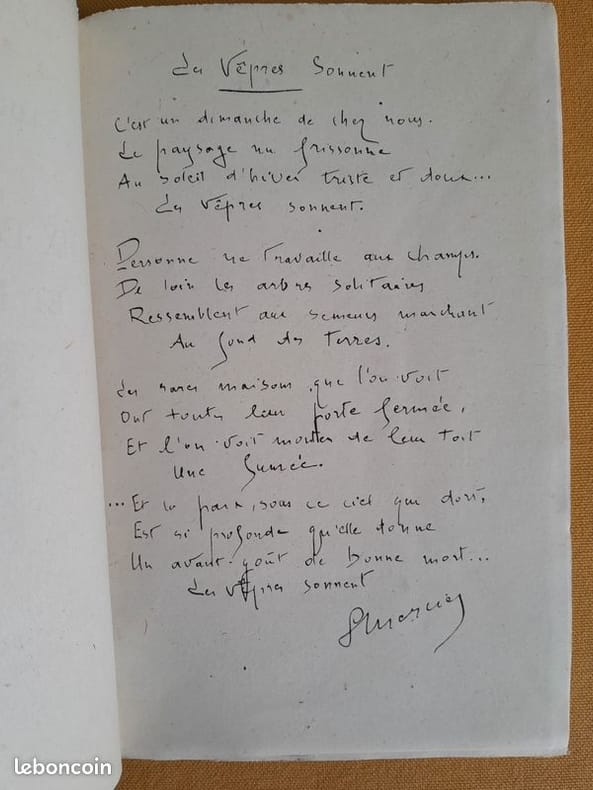 Les Vêpres Sonnent
C'est un dimanche de chez nous.
Le paysage nu frissonne
Au soleil d'hiver triste et doux...
Les Vêpres sonnent.
Personne ne travaille aux champs.
De loin les arbres solitaires
Ressemblent aux semeurs marchant
Au fond des Terres.
Les rares maisons que l'on voit
Ont toutes leur porte fermée,
Et l'on voit monter de leur toit
Une fumée.
...Et la paix, sous ce ciel qui dort,
Est si profonde qu'elle donne
Un avant-goût de bonne mort...
Les Vêpres sonnent
leboncoin